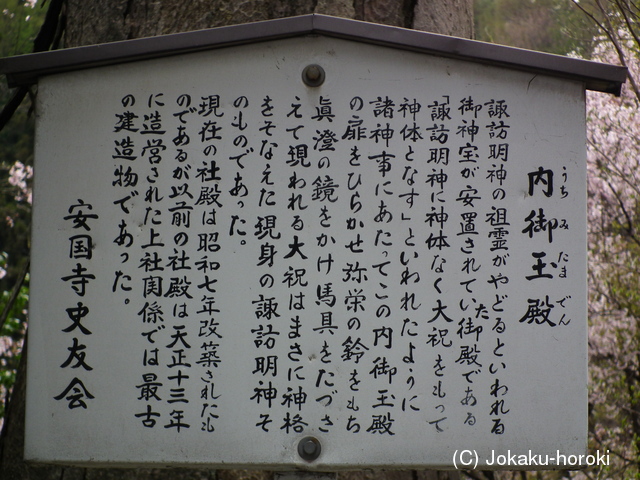 内御玉殿
うちみたまでん
諏訪明神の祖霊がやどるといわれる
御神宝が安置されてい御殿である
た
「諏訪明神に神体なく大祝をもって
神体となす」といわれたように
諸神事にあたってこの内御玉殿
の扉をひらかせ弥栄の鈴をもち
眞澄の鏡をかけ馬具をたづさ
えて現われる大祝はまさに神格
をそなえた現身の諏訪明神そ
のものであった。
現在の社殿は昭和七年改築されたも
のであるが以前の社殿は天正十三年
に造営された上社関係では最古
の建造物であった。
安国寺史友会
(C) Jokaku-horoki